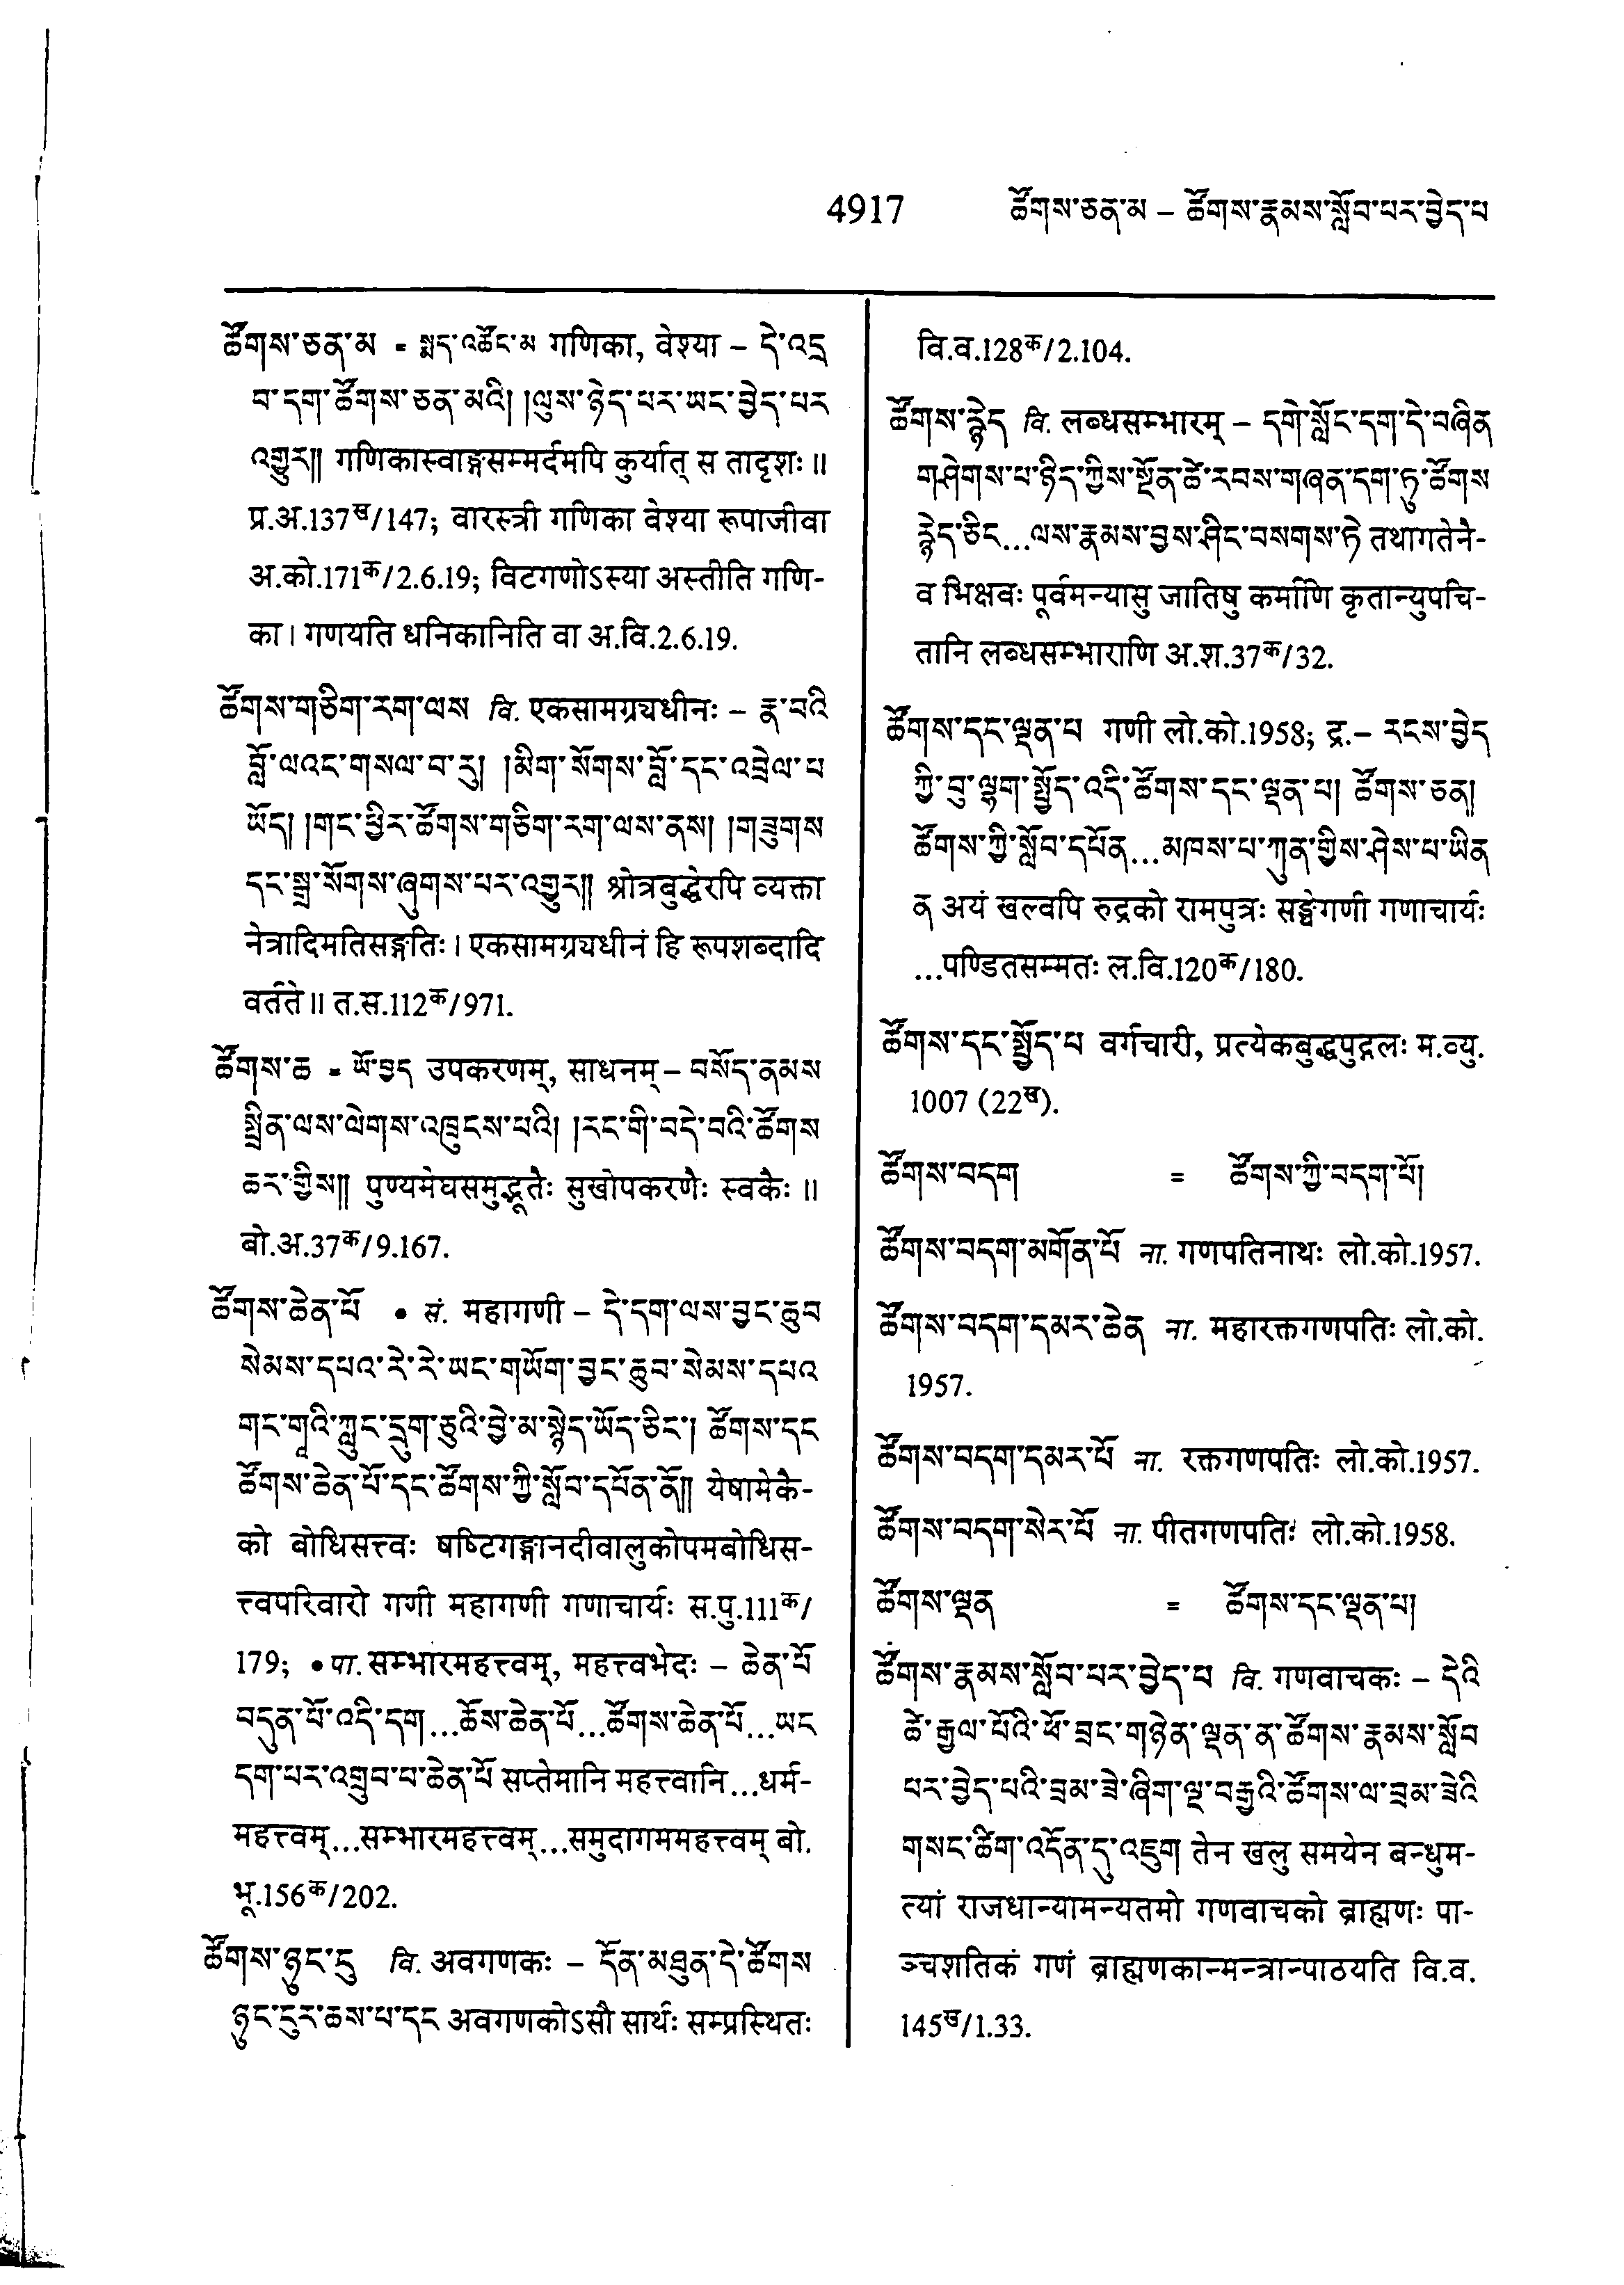 4917 ཚོགས་ཅན་མ – ཚོགས་རྣམས་སློབ་པར་བྱེད་པ
ཚོགས་ཅན་མ = སྨད་འཚོང་མ गणिका, वेश्या – དེ་འདྲ
བ་དག་ཚོགས་ཅན་མའི། །ལུས་ཉེད་པར་ཡང་བྱེད་པར
འགྱུར།། गणिकास्वाङ्गसम्मर्दमपि कुर्यात् स तादृशः ॥
प्र.अ.137ख/147; वारस्त्री गणिका वेश्या रूपाजीवा
अ.को.171क/2.6.19; विटगणोऽस्या अस्तीति गणि-
का । गणयति धनिकानिति वा अ.वि.2.6.19.
ཚོགས་གཅིག་རག་ལས वि. एकसामग्र्यधीनः – རྣ་བའི
བློ་ལའང་གསལ་བ་རུ། །མིག་སོགས་བློ་དང་འབྲེལ་པ
ཡོད། །གང་ཕྱིར་ཚོགས་གཅིག་རག་ལས་ནས། །གཟུགས
དང་སྒྲ་སོགས་ཞུགས་པར་འགྱུར།། श्रोत्रबुद्धेरपि व्यक्ता
नेत्रादिमतिसङ्गतिः । एकसामग्र्यधीनं हि रूपशब्दादि
वर्तते ॥ त.स.112क/971.
ཚོགས་ཆ = ཡོ་བྱད उपकरणम्, साधनम् – བསོད་ནམས
སྤྲིན་ལས་ལེགས་འཁྲུངས་པའི། །རང་གི་བདེ་བའི་ཚོགས
ཆར་གྱིས།། पुण्यमेघसमुद्भूतैः सुखोपकरणैः स्वकैः ॥
बो.अ.37क/9.167.
ཚོགས་ཆེན་པོ • सं. महागणी – དེ་དག་ལས་བྱང་ཆུབ
སེམས་དཔའ་རེ་རེ་ཡང་གཡོག་བྱང་ཆུབ་སེམས་དཔའ
གང་གཱའི་ཀླུང་དྲུག་ཅུའི་བྱེ་མ་སྙེད་ཡོད་ཅིང་། ཚོགས་དང
ཚོགས་ཆེན་པོ་དང་ཚོགས་ཀྱི་སློབ་དཔོན་ནོ།། येषामेकै-
को बोधिसत्त्वः षष्टिगङ्गानदीवालुकोपमबोधिस-
त्त्वपरिवारो गणी महागणी गणाचार्यः स.पु.111क/
179; • पा. सम्भारमहत्त्वम्, महत्त्वभेदः – ཆེན་པོ
བདུན་པོ་འདི་དག...ཆོས་ཆེན་པོ...ཚོགས་ཆེན་པོ...ཡང
དག་པར་འགྲུབ་པ་ཆེན་པོ सप्तेमानि महत्त्वानि...धर्म-
महत्त्वम्...सम्भारमहत्त्वम्...समुदागममहत्त्वम् बो.
भू.156क/202.
ཚོགས་ཉུང་ངུ वि. अवगणकः – དོན་མཐུན་དེ་ཚོགས
ཉུང་ངུར་ཆས་པ་དང अवगणकोऽसौ सार्थः सम्प्रस्थितः
वि.व.128क/2.104.
ཚོགས་རྙེད वि. लब्धसम्भारम् – དགེ་སློང་དག་དེ་བཞིན
གཤེགས་པ་ཉིད་ཀྱིས་སྔོན་ཚེ་རབས་གཞན་དག་ཏུ་ཚོགས
རྙེད་ཅིང...ལས་རྣམས་བྱས་ཤིང་བསགས་ཏེ तथागतेनै-
व भिक्षवः पूर्वमन्यासु जातिषु कर्माणि कृतान्युपचि-
तानि लब्धसम्भाराणि अ.श.37क/32.
ཚོགས་དང་ལྡན་པ गणी लो.को.1958; द्र.– རངས་བྱེད
ཀྱི་བུ་ལྷག་སྤྱོད་འདི་ཚོགས་དང་ལྡན་པ། ཚོགས་ཅན།
ཚོགས་ཀྱི་སློབ་དཔོན...མཁས་པ་ཀུན་གྱིས་ཤེས་པ་ཡིན
ན अयं खल्वपि रुद्रको रामपुत्रः सङ्घेगणी गणाचार्यः
...पण्डितसम्मतः ल.वि.120क/180.
ཚོགས་དང་སྤྱོད་པ वर्गचारी, प्रत्येकबुद्धपुद्गलः म.व्यु.
1007 (22ख).
ཚོགས་བདག = ཚོགས་ཀྱི་བདག་པོ།
ཚོགས་བདག་མགོན་པོ ना. गणपतिनाथः लो.को.1957.
ཚོགས་བདག་དམར་ཆེན ना. महारक्तगणपतिः लो.को.
1957.
ཚོགས་བདག་དམར་པོ ना. रक्तगणपतिः लो.को.1957.
ཚོགས་བདག་སེར་པོ ना. पीतगणपतिः लो.को.1958.
ཚོགས་ལྡན = ཚོགས་དང་ལྡན་པ།
ཚོགས་རྣམས་སློབ་པར་བྱེད་པ वि. गणवाचकः – དེའི
ཚེ་རྒྱལ་པོའི་ཕོ་བྲང་གཉེན་ལྡན་ན་ཚོགས་རྣམས་སློབ
པར་བྱེད་པའི་བྲམ་ཟེ་ཞིག་ལྔ་བརྒྱའི་ཚོགས་ལ་བྲམ་ཟེའི
གསང་ཚིག་འདོན་དུ་འཇུག तेन खलु समयेन बन्धुम-
त्यां राजधान्यामन्यतमो गणवाचको ब्राह्मणः पा-
ञ्चशतिकं गणं ब्राह्मणकान्मन्त्रान्पाठयति वि.व.
145ख/1.33.